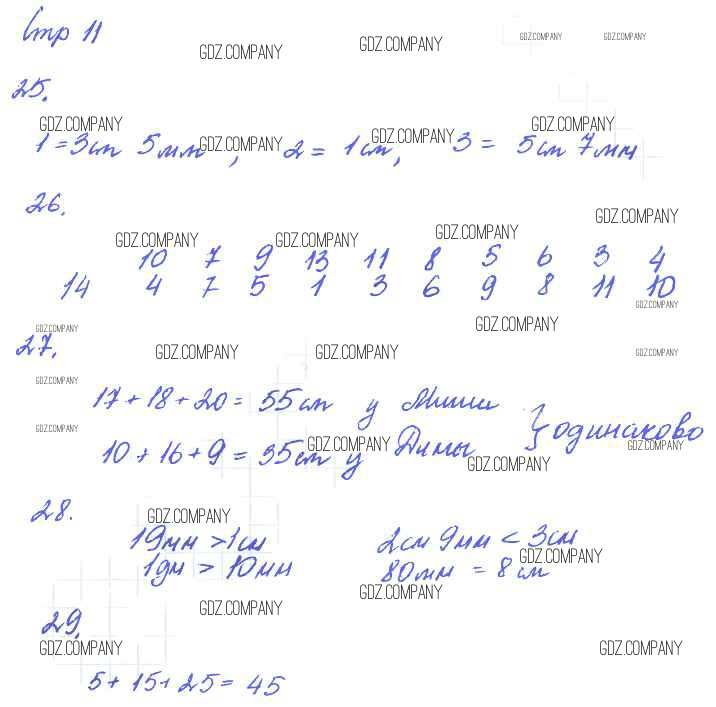 Стр 11
GDZ.COMPANY GDZ.COMPANY GDZ.COMPANY GDZ.COMPANY
25.
GDZ.COMPANY GDZ.COMPANY GDZ.COMPANY GDZ.COMPANY
1 = 3см 5мм, 2 = 1см, 3 = 5см 7мм
26.
GDZ.COMPANY GDZ.COMPANY GDZ.COMPANY GDZ.COMPANY
10 7 9 13 11 8 5 6 3 4
14 4 7 5 1 3 6 9 8 11 10
GDZ.COMPANY
GDZ.COMPANY GDZ.COMPANY
27.
GDZ.COMPANY GDZ.COMPANY GDZ.COMPANY
GDZ.COMPANY
17 + 18 + 20 = 55см у Миши
GDZ.COMPANY GDZ.COMPANY GDZ.COMPANY
} одинаково
10 + 16 + 9 = 35см у Димы
GDZ.COMPANY
28.
GDZ.COMPANY
19мм > 1см 2см 9мм < 3см
GDZ.COMPANY
1дм > 10мм 80мм = 8см
GDZ.COMPANY GDZ.COMPANY
29.
GDZ.COMPANY GDZ.COMPANY
5 + 15 + 25 = 45